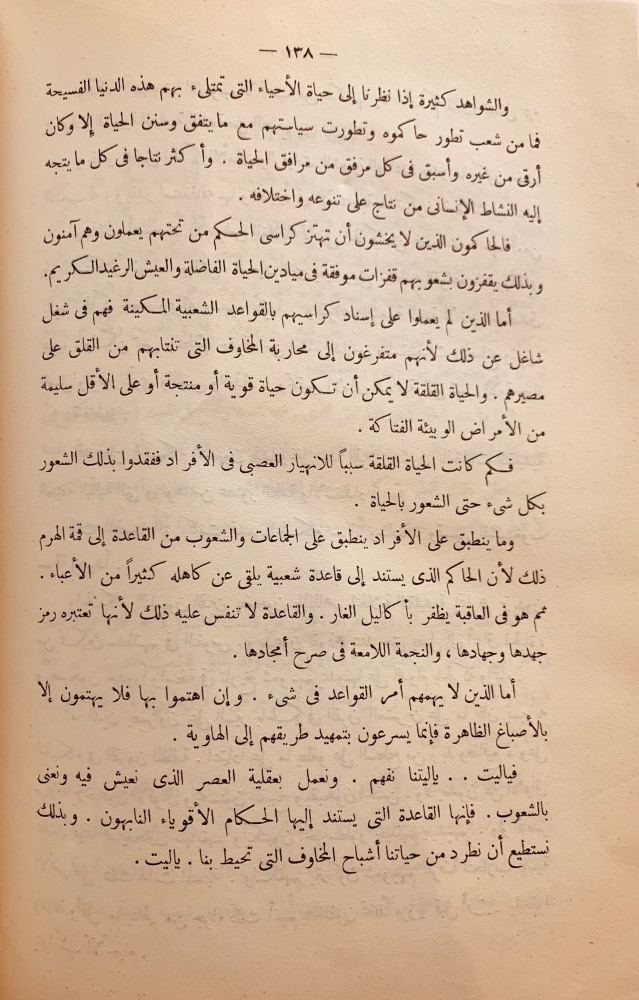 — ١٣٨ —
والشواهد كثيرة إذا نظرنا إلى حياة الأحياء التى تمتلىء بهم هذه الدنيا الفسيحة
فما من شعب تطور حاكموه وتطورت سياستهم مع ما يتفق وسنن الحياة إلا وكان
أرقى من غيره وأسبق فى كل مرفق من مرافق الحياة . وأكثر نتاجا فى كل ما يتجه
إليه النشاط الإنسانى من نتاج على تنوعه واختلافه .
فالحاكمون الذين لا يخشون أن تهتز كراسى الحكم من تحتهم يعملون وهم آمنون
وبذلك يقفزون بشعوبهم قفزات موفقة فى ميادين الحياة الفاضلة والعيش الرغيد الكريم.
أما الذين لم يعملوا على إسناد كراسيهم بالقواعد الشعبية المكينة فهم فى شغل
شاغل عن ذلك لأنهم متفرغون إلى محاربة المخاوف التى تنتابهم من القلق على
مصيرهم . والحياة القلقة لا يمكن أن تكون حياة قوية أو منتجة أو على الأقل سليمة
من الأمراض الوبيئة الفتاكة .
فكم كانت الحياة القلقة سبباً للانهيار العصبى فى الأفراد ففقدوا بذلك الشعور
بكل شىء حتى الشعور بالحياة .
وما ينطبق على الأفراد ينطبق على الجماعات والشعوب من القاعدة إلى قمة الهرم
ذلك لأن الحاكم الذى يستند إلى قاعدة شعبية يلقى عن كاهله كثيراً من الأعباء .
ثم هو فى العاقبة يظفر بأكاليل الغار . والقاعدة لا تنفس عليه ذلك لأنها تعتبره رمز
جهدها وجهادها ، والنجمة اللامعة فى صرح أمجادها .
أما الذين لا يهمهم أمر القواعد فى شىء . وإن اهتموا بها فلا يهتمون إلا
بالأصباغ الظاهرة فإنما يسرعون بتمهيد طريقهم إلى الهاوية .
فياليت . . ياليتنا نفهم . ونعمل بعقلية العصر الذى نعيش فيه ونعنى
بالشعوب . فإنها القاعدة التى يستند إليها الحكام الأقوياء النابهون . وبذلك
نستطيع أن نطرد من حياتنا أشباح المخاوف التى تحيط بنا . ياليت .